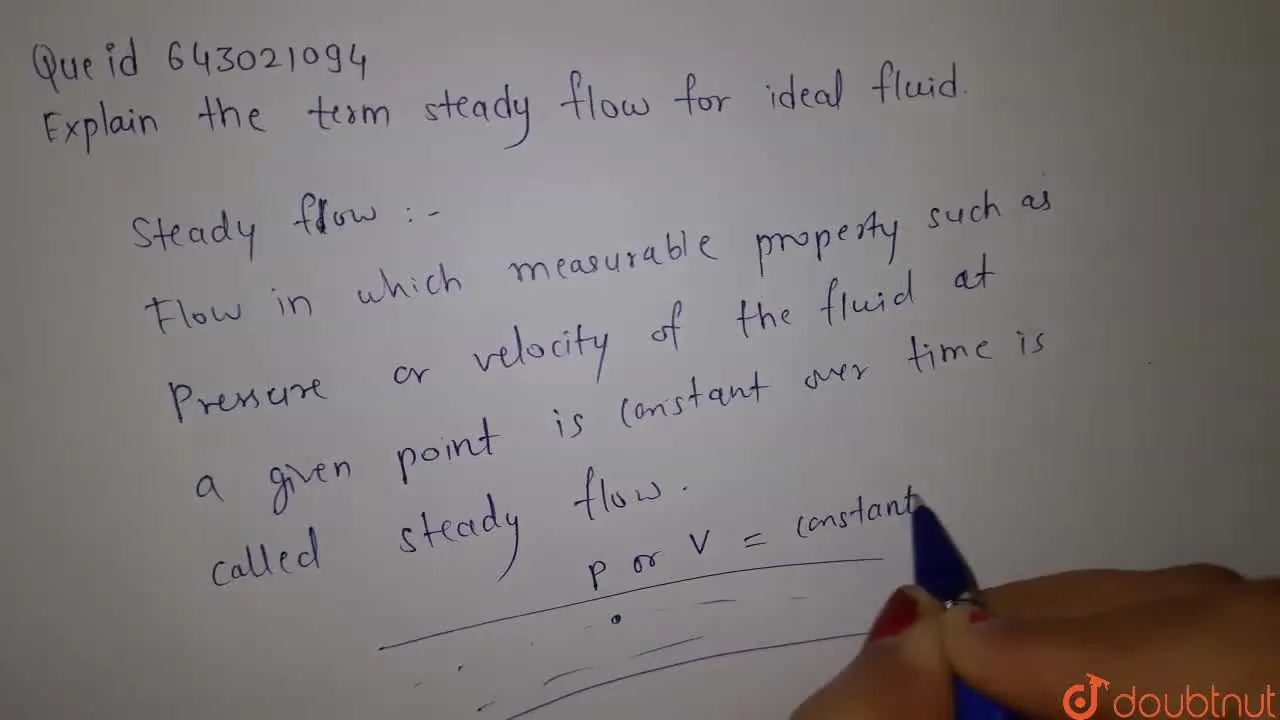 Que id 643021094
Explain the term steady flow for ideal fluid.
Steady flow :-
Flow in which measurable property such as
Pressure or velocity of the fluid at
a given point is constant over time is
called steady flow.
P or V = constant
doubtnut